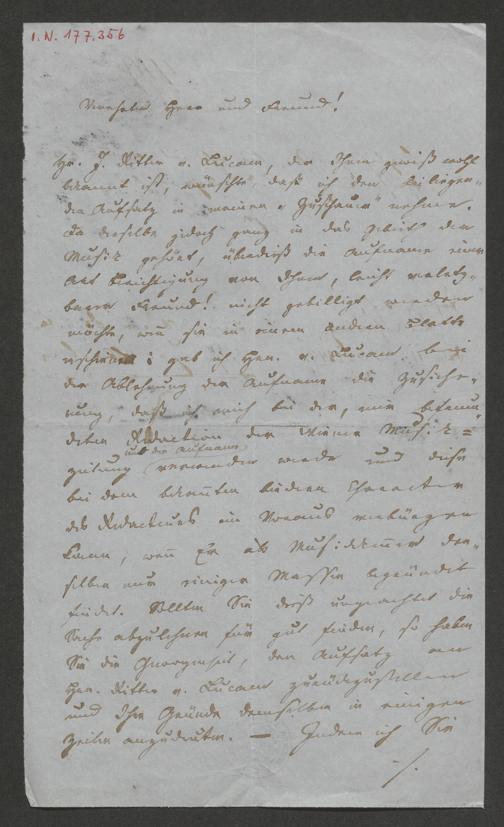 I.N. 177.356
Verehrter Herr und Freund!
Hr. J. Ritter v. Lucam, der Ihnen gewiß wohl
bekannt ist, wünschte daß ich den beiliegen-
den Aufsatz in meinen „Zuschauer" nehme.
Da derselbe jedoch ganz in das Gebieth der
Musik gehört, überdieß die Aufname einer
Art Berichtigung von Ihnen,
Freund! nicht gebilligt werden
möchte, wenn sie in einem andern Blatte
erschiene; gab ich Hrn. v. Lucam bei
der Ablehnung der Aufname die Zusiche-
rung, daß ich mich bei der, mir befreun-
deten Redaction der Wiener Musik-
zeitung um die Aufname verwenden werde und diese
bei dem bekannten biedern Character
des Redacteurs im Voraus verbürgen
kann, wenn Er als Musikkenner den-
selben nur einiger Massen begründet
findet. Sollten Sie deß ungeachtet die
Sache abzulehnen für gut finden, so haben
Sie die Gewogenheit, den Aufsatz an
Hrn. Ritter v. Lucam zurückzustellen
und Ihre Gründe demselben in einigen
Zeilen anzudeuten. — Indem ich Sie